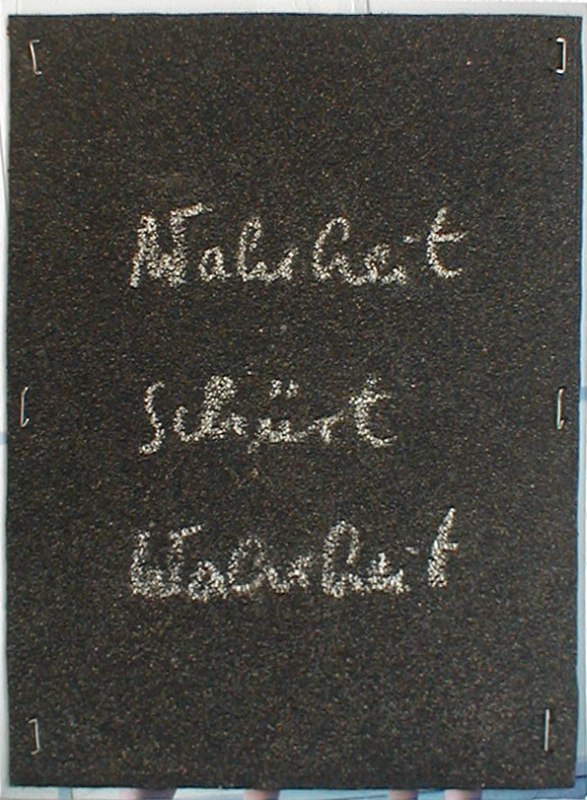 Wahrheit
Schürt
Wahrheit